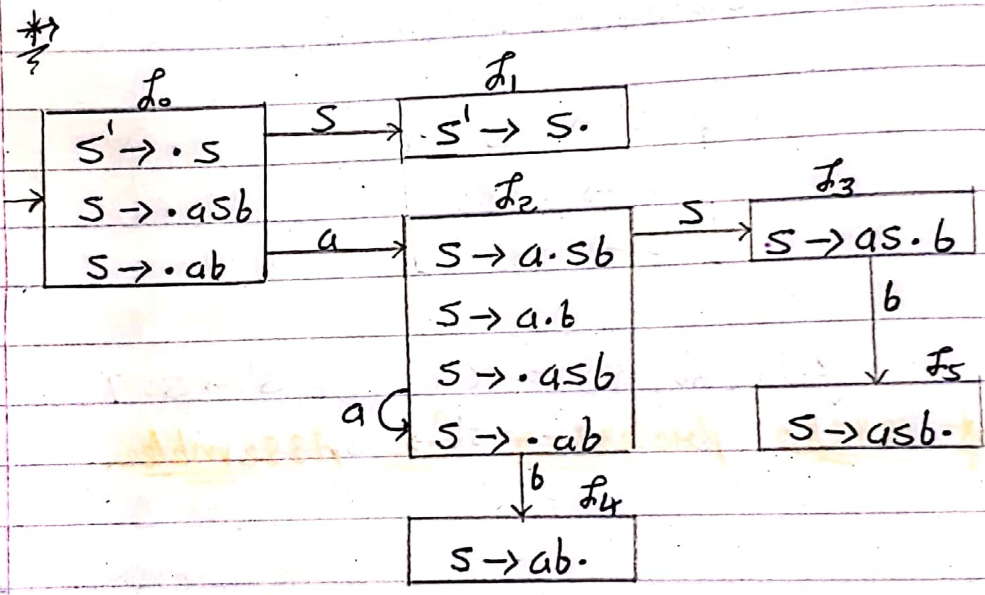 I₀
S' → · S
S → · aSb
S → · ab
S
a
I₁
S' → S ·
I₂
S → a · Sb
S → a · b
S → · aSb
S → · ab
a
S
I₃
S → aS · b
b
I₅
S → aSb ·
b
I₄
S → ab ·